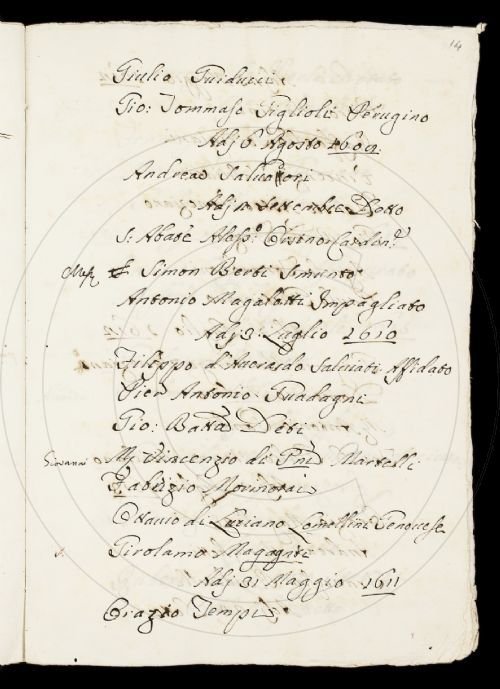 14
Giulio Guiducci
Gio: Tommaso Figlioli Perugino
Adj 6 Agosto 1609
Andrea Salvadori
Adj Settembre Detto
S. Abate Aless.º Orsino Card.
Simon Berti Smunto
Antonio Magalotti Impagliato
Adj 3 Luglio 1610
Filippo d'Averardo Salviati Affidato
Pier Antonio Guadagni
Gio: Batta Deti
Giovanni
Vincenzio di Martelli
Fabrizio Mormorai
Ottavio di Luciano Lomellini Genovese
Girolamo Magagni
Adj 31 Maggio 1611
Orazio Tempi